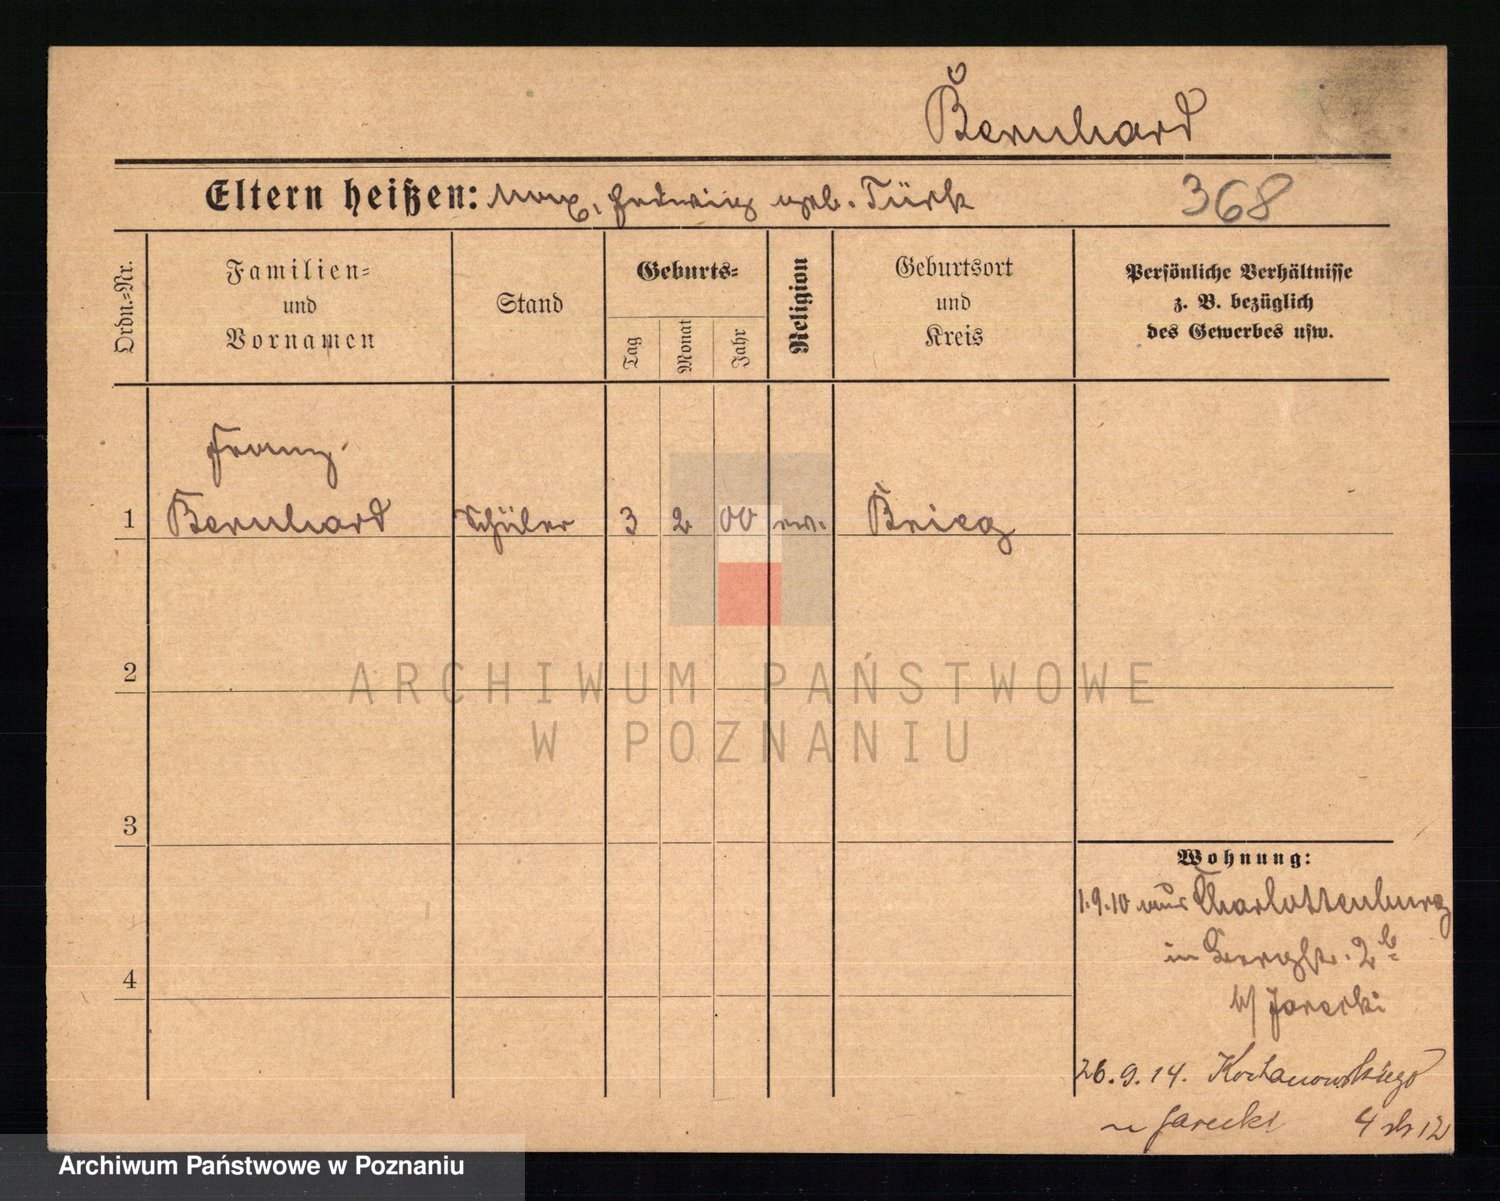 Bernhard
Eltern heißen: Max, Hedwig geb. Türk 368
Ordn.=Nr.
Familien=
und
Vornamen
Stand
Geburts=
Tag
Monat
Jahr
Religion
Geburtsort
und
Kreis
Persönliche Verhältnisse
z. B. bezüglich
des Gewerbes usw.
Franz
1 Bernhard Schüler 3 2 00 ev. Brieg
2
3
4
Wohnung:
1.9.10 aus Charlottenburg
in 2b
b/ Jarecki
26.9.14. Kochanowskiego
Jarecki 4 12
ARCHIWUM PAŃSTWOWE
W POZNANIU
Archiwum Państwowe w Poznaniu